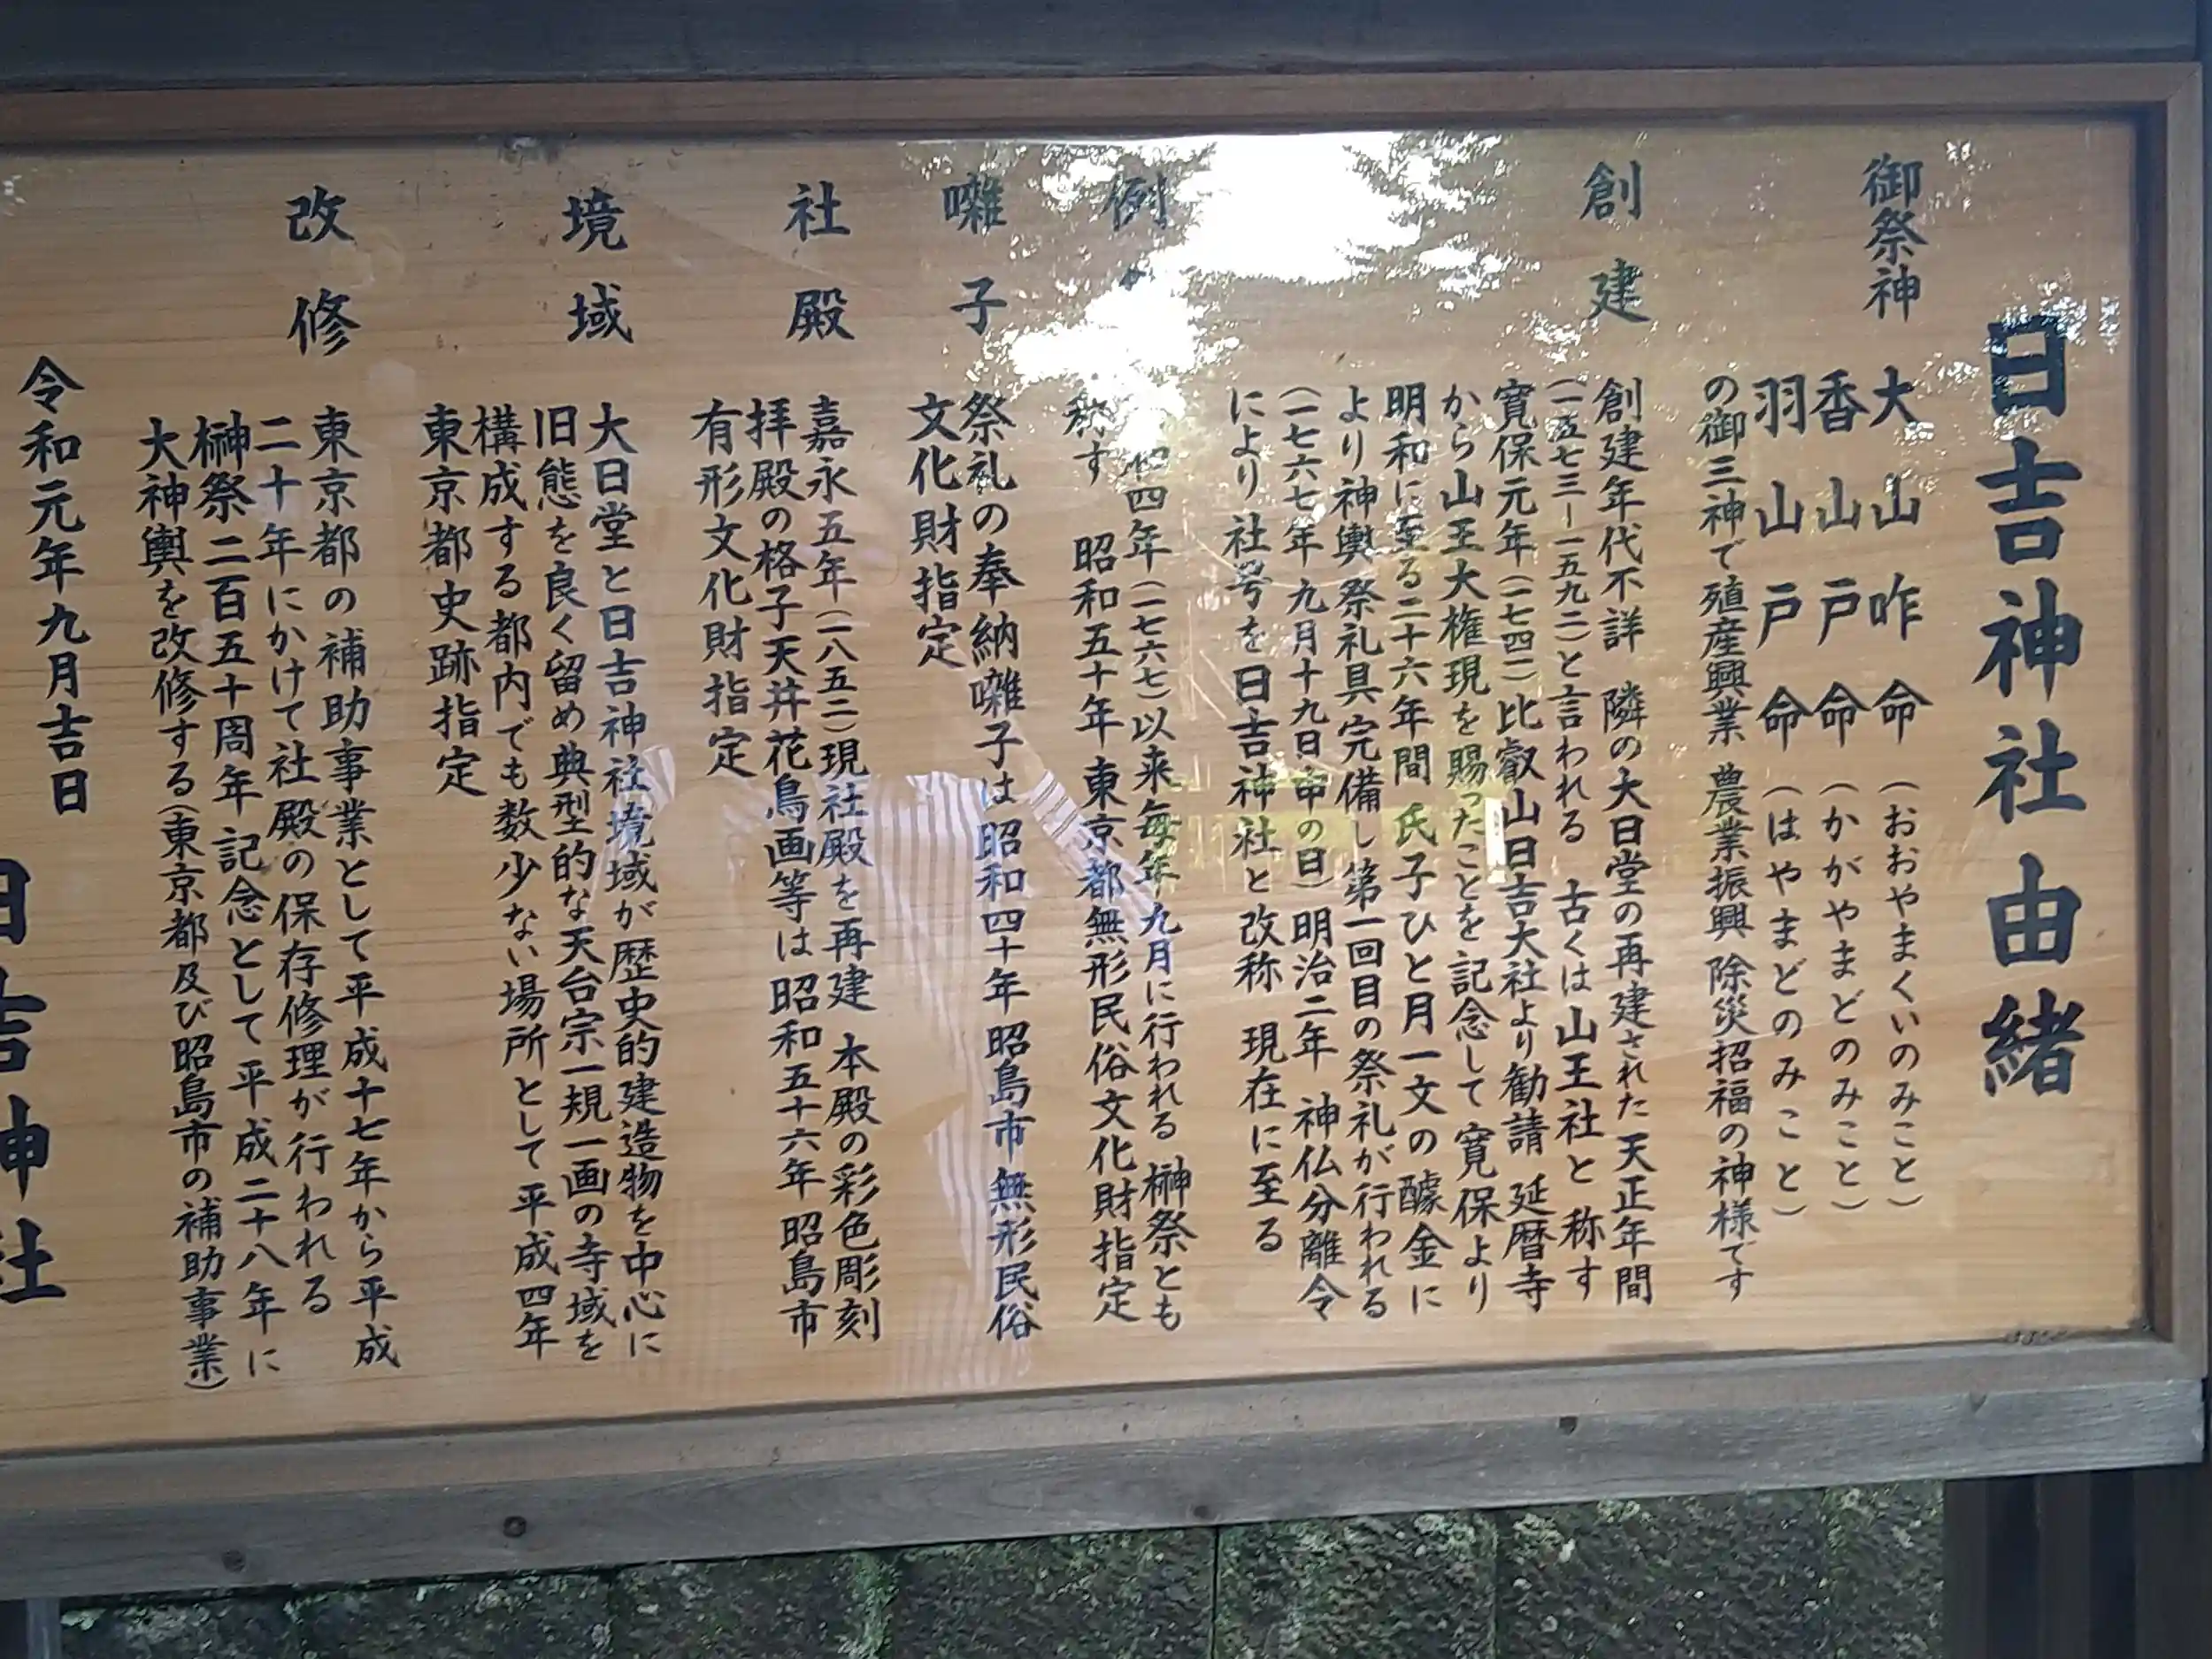 日吉神社由緒
御祭神
大山咋命（おおやまくいのみこと）
香山戸命（かがやまどのみこと）
羽山戸命（はやまどのみこと）
の御三神で殖産興業 農業振興 除災招福の神様です
創建
創建年代不詳 隣の大日堂の再建された天正年間
（一五七三ー一五九二）と言われる 古くは山王社と称す
寛保元年（一七四一）比叡山日吉大社より勧請 延暦寺
から山王大権現を賜ったことを記念して寛保より
明和に至る二十六年間 氏子ひと月一文の醵金に
より神輿祭礼具完備し第一回目の祭礼が行われる
（一七六七年九月十九日申の日）明治二年 神仏分離令
により社号を日吉神社と改称 現在に至る
例
四年（一七六七）以来毎年九月に行われる 榊祭とも
称す 昭和五十年東京都無形民俗文化財指定
囃子
祭礼の奉納囃子は昭和四十年昭島市無形民俗
文化財指定
社殿
嘉永五年（一八五二）現社殿を再建 本殿の彩色彫刻
拝殿の格子天井花鳥画等は昭和五十六年昭島市
有形文化財指定
境域
大日堂と日吉神社境域が歴史的建造物を中心に
旧態を良く留め典型的な天台宗一規一画の寺域を
構成する都内でも数少ない場所として平成四年
東京都史跡指定
改修
東京都の補助事業として平成十七年から平成
二十年にかけて社殿の保存修理が行われる
榊祭二百五十周年記念として平成二十八年に
大神輿を改修する（東京都及び昭島市の補助事業）
令和元年九月吉日
日吉神社